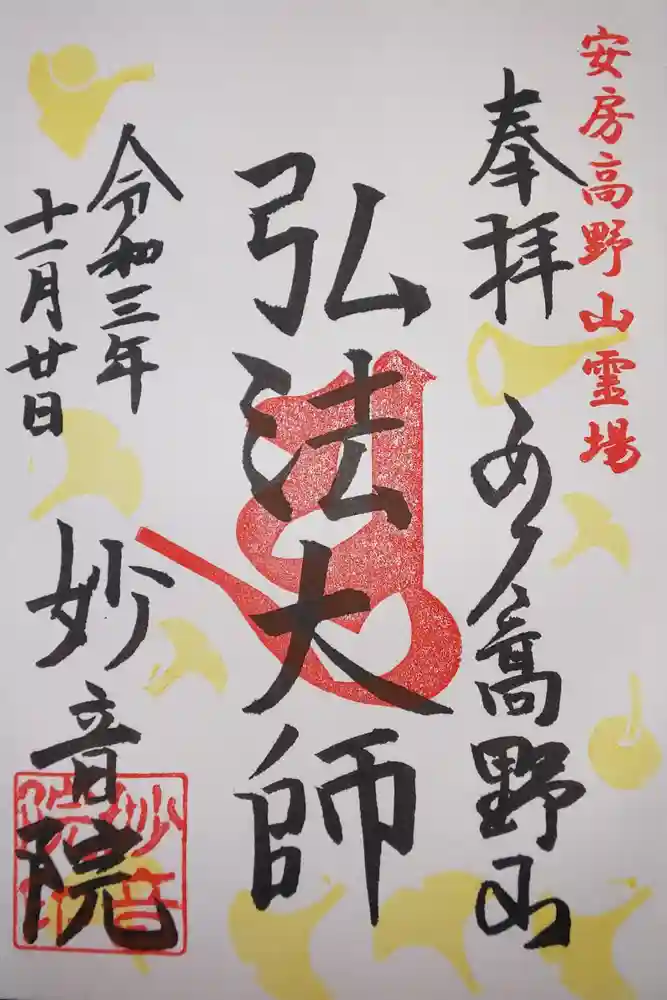 安房高野山霊場
奉拝
あわ高野山
弘法大師
令和三年
十一月廿日
妙音院
妙音
院印